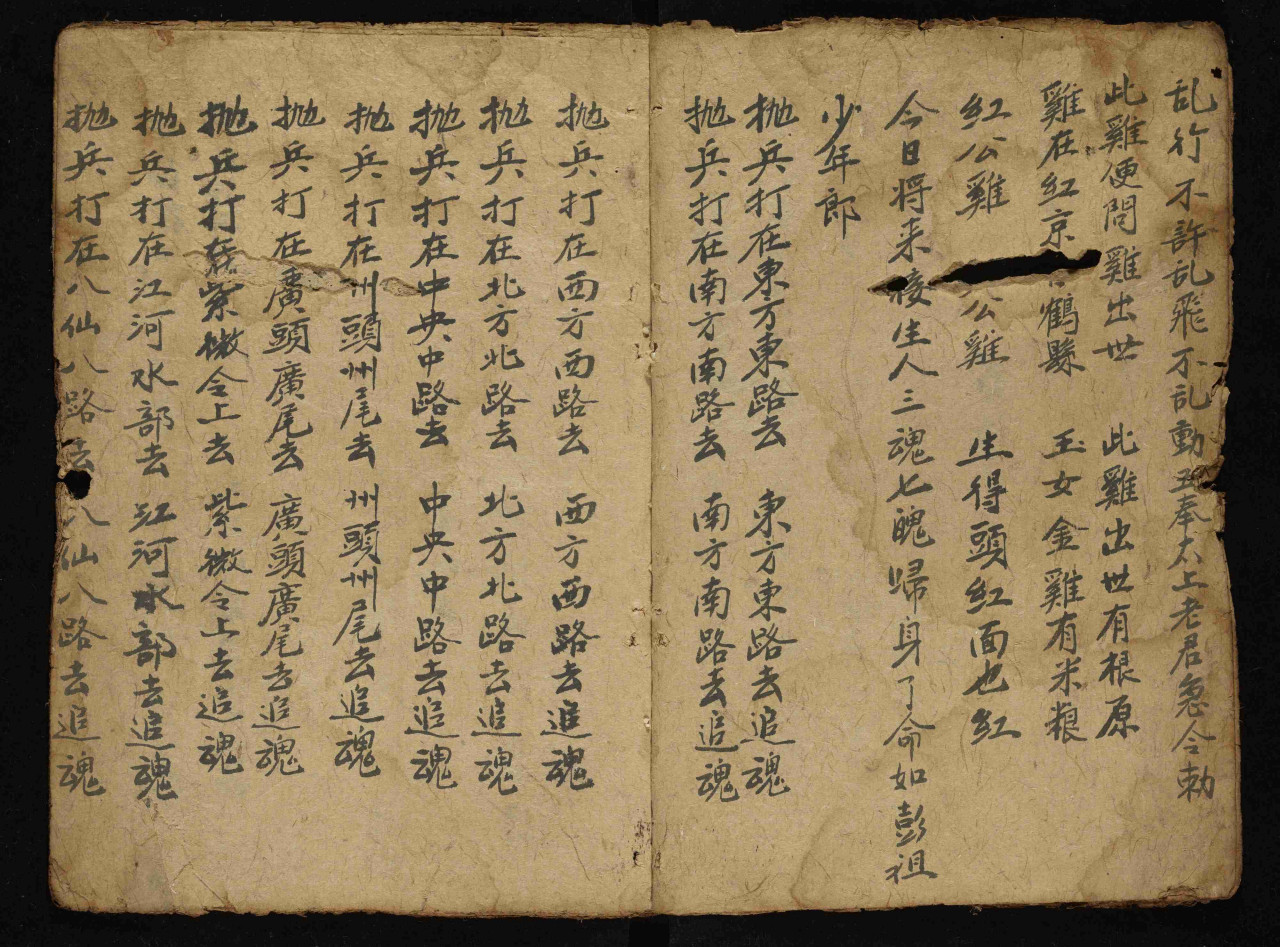 乱行不許乱飛不乱動吾奉太上老君急令勅
此雞便問雞出世 此雞出世有根原
雞在紅京鶴縣 玉女金雞有米粮
紅公雞公雞 生得頭紅面也紅
今日将来接生人三魂七魄歸身了命如彭祖
少年郎
抛兵打在東方東路去 東方東路去追魂
抛兵打在南方南路去 南方南路去追魂
抛兵打在西方西路去 西方西路去追魂
抛兵打在北方北路去 北方北路去追魂
抛兵打在中央中路去 中央中路去追魂
抛兵打在州頭州尾去 州頭州尾去追魂
抛兵打在廣頭廣尾去 廣頭廣尾去追魂
抛兵打在紫微令上去 紫微令上去追魂
抛兵打在江河水部去 江河水部去追魂
抛兵打在八仙八路去 八仙八路去追魂